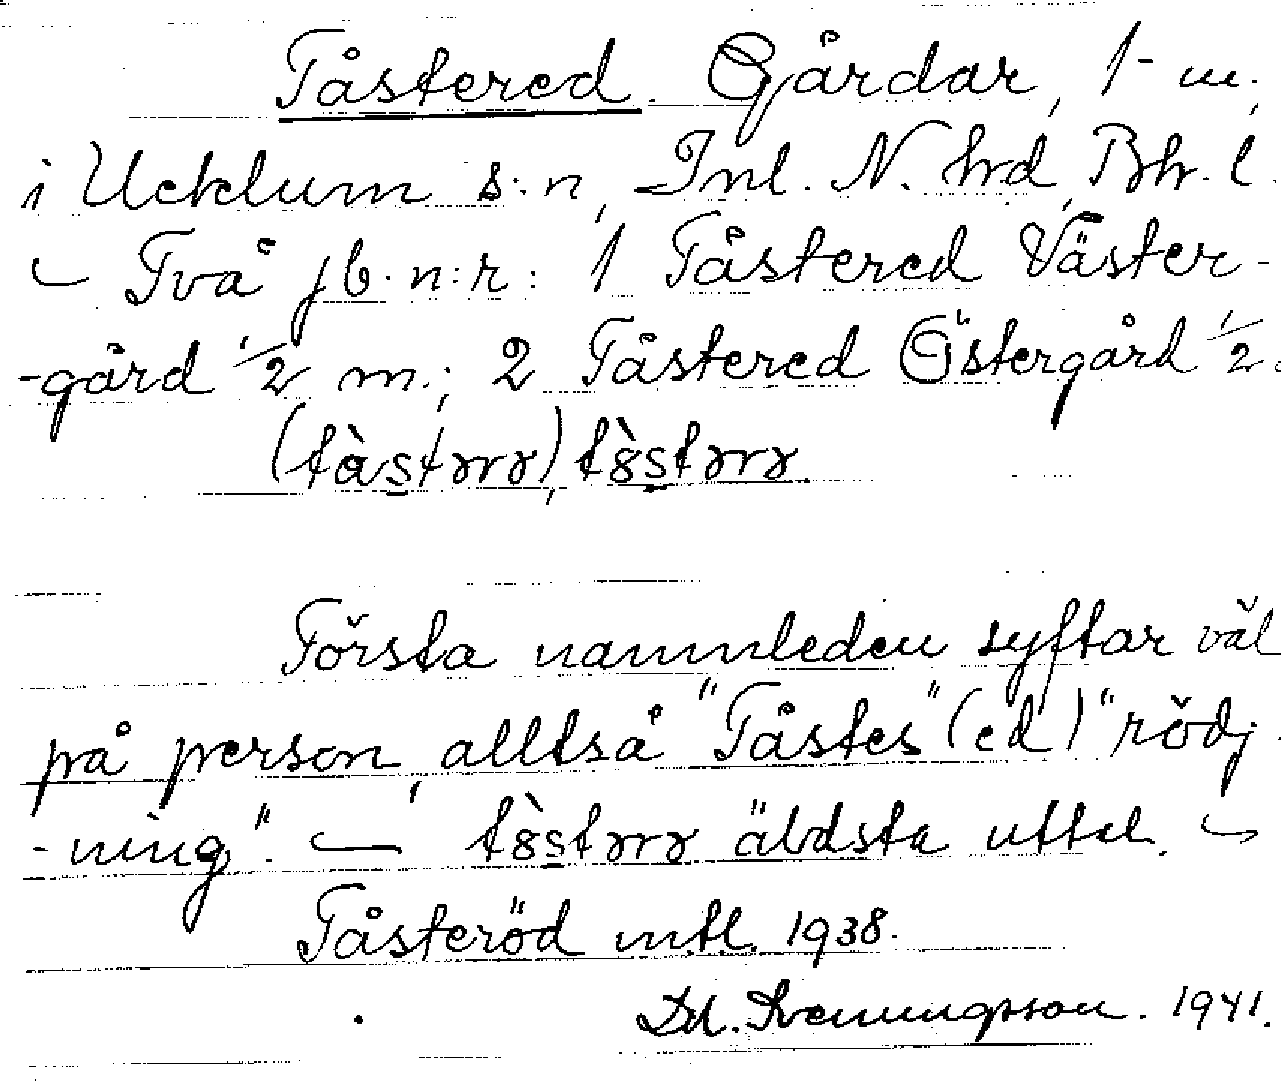 Tåstered. Gårdar, 1 m.,
i Ucklum s:n, Inl. N. hrd, Bh. l.
– Två jb. n:r: 1 Tåstered Väster-
-gård 1/2 m.; 2 Tåstered Östergård 1/2.
Första namnleden syftar väl
på person, alltså "Tåstes" (ed) "rödj-
-ning". – äldsta uttal. –
Tåsteröd mtl. 1938.
Dd. Svenningsson. 1941.